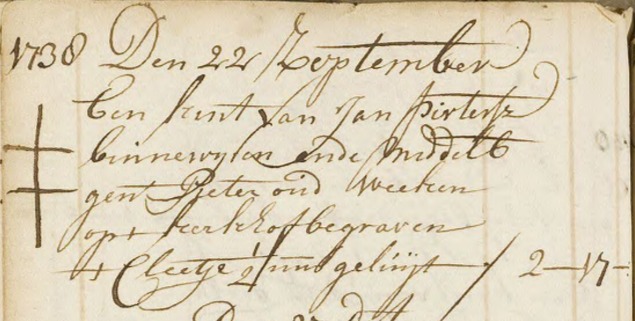 1738 Den 22 September
Een kint van Jan Pieters
binnewysen ende middelb
gent Pieter oud weeken
op t kerkhof begraven
+ Cleetje ½ uur geluijt / 2-17-